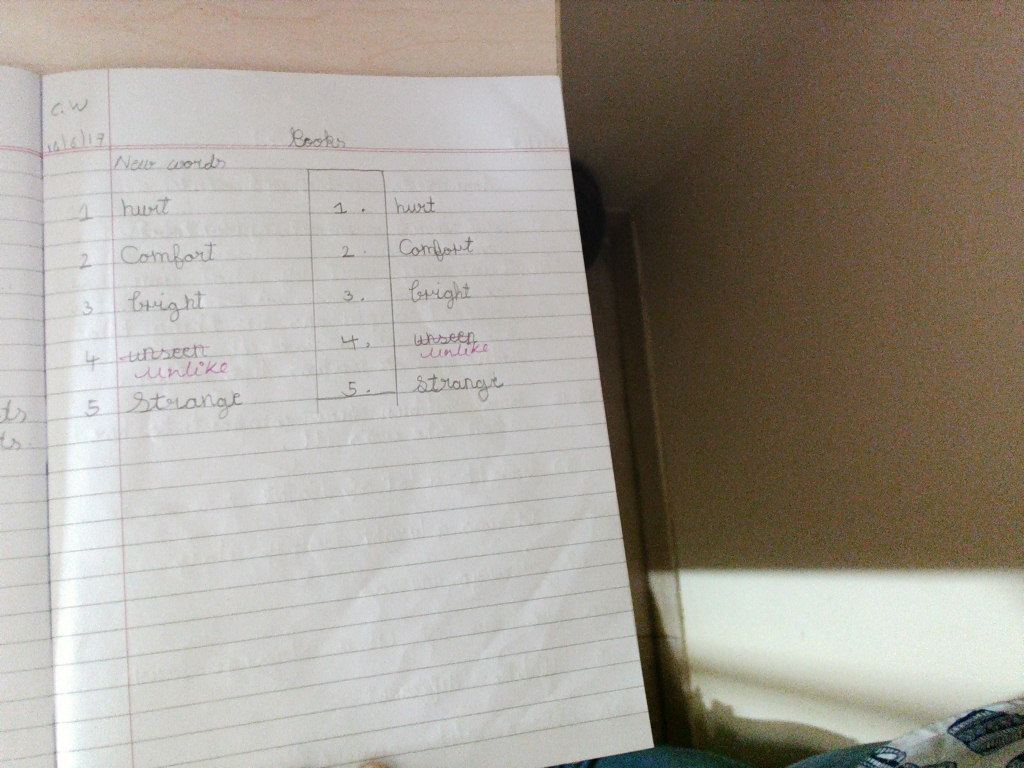 C.W
Books
New words
1 hurt 1. hurt
2 Comfort 2. Comfort
3 bright 3. bright
4 unseen 4. unseen
unlike unlike
5 Strange 5. Strange
ts
ts.